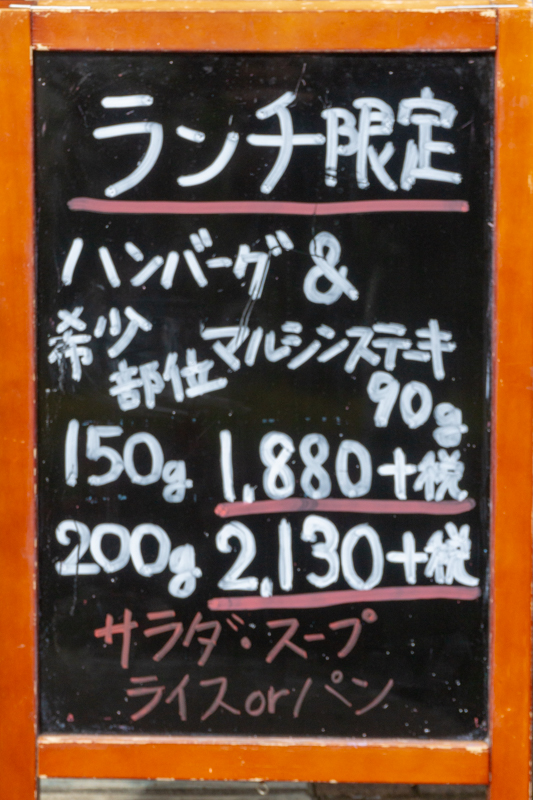 ランチ限定
ハンバーグ &
希少部位 マルシンステーキ
90g
150g 1,880+税
200g 2,130+税
サラダ・スープ
ライスorパン